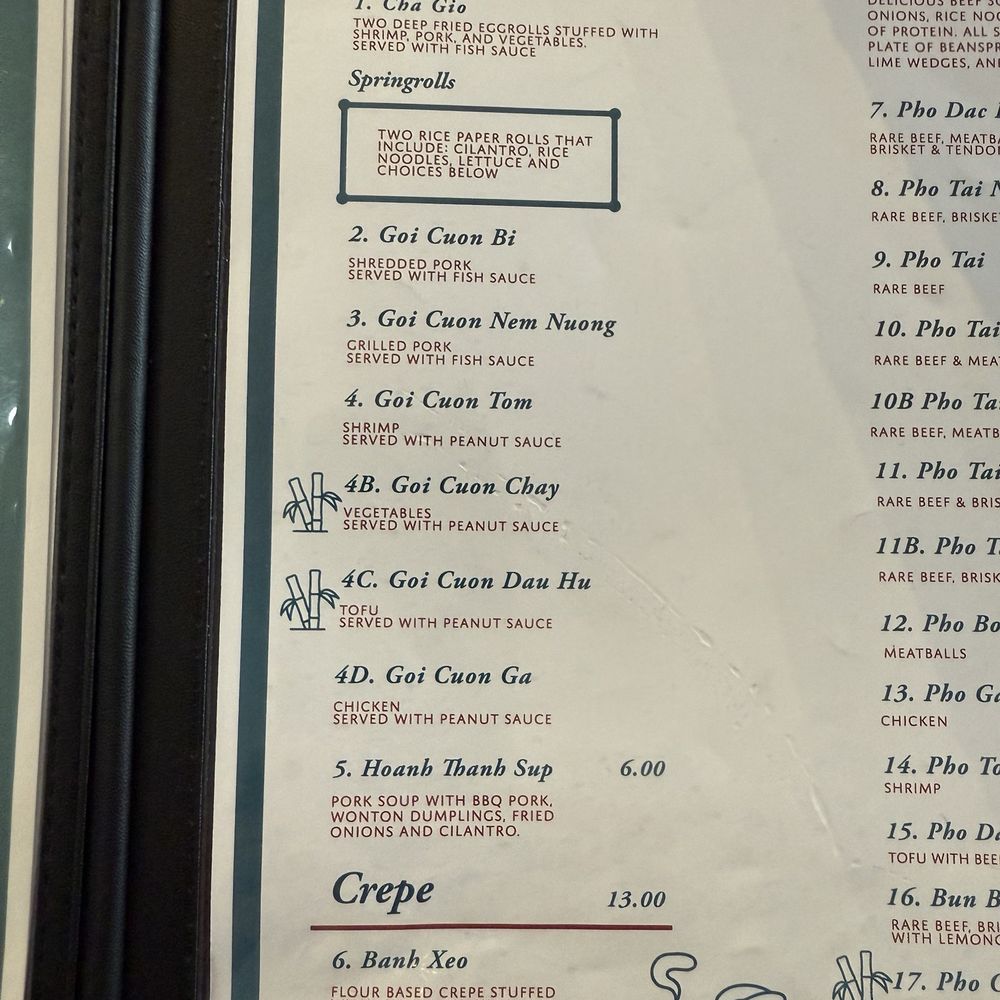 1. Cha Gio
TWO DEEP FRIED EGGROLLS STUFFED WITH
SHRIMP, PORK, AND VEGETABLES.
SERVED WITH FISH SAUCE
Springrolls
TWO RICE PAPER ROLLS THAT
INCLUDE: CILANTRO, RICE
NOODLES, LETTUCE AND
CHOICES BELOW
2. Goi Cuon Bi
SHREDDED PORK
SERVED WITH FISH SAUCE
3. Goi Cuon Nem Nuong
GRILLED PORK
SERVED WITH FISH SAUCE
4. Goi Cuon Tom
SHRIMP
SERVED WITH PEANUT SAUCE
4B. Goi Cuon Chay
VEGETABLES
SERVED WITH PEANUT SAUCE
4C. Goi Cuon Dau Hu
TOFU
SERVED WITH PEANUT SAUCE
4D. Goi Cuon Ga
CHICKEN
SERVED WITH PEANUT SAUCE
5. Hoanh Thanh Sup 6.00
PORK SOUP WITH BBQ PORK,
WONTON DUMPLINGS, FRIED
ONIONS AND CILANTRO.
Crepe 13.00
6. Banh Xeo
FLOUR BASED CREPE STUFFED
DELICIOUS BEEF
ONIONS, RICE
OF PROTEIN. ALL
PLATE OF
LIME WEDGES,
7. Pho Dac
RARE BEEF,
BRISKET &
8. Pho Tai
RARE BEEF,
9. Pho Tai
RARE BEEF
10. Pho Tai
RARE BEEF &
10B Pho
RARE BEEF,
11. Pho Tai
RARE BEEF &
11B. Pho
RARE BEEF,
12. Pho
MEATBALLS
13. Pho
CHICKEN
14. Pho
SHRIMP
15. Pho
TOFU WITH
16. Bun
RARE BEEF,
WITH
17. Pho